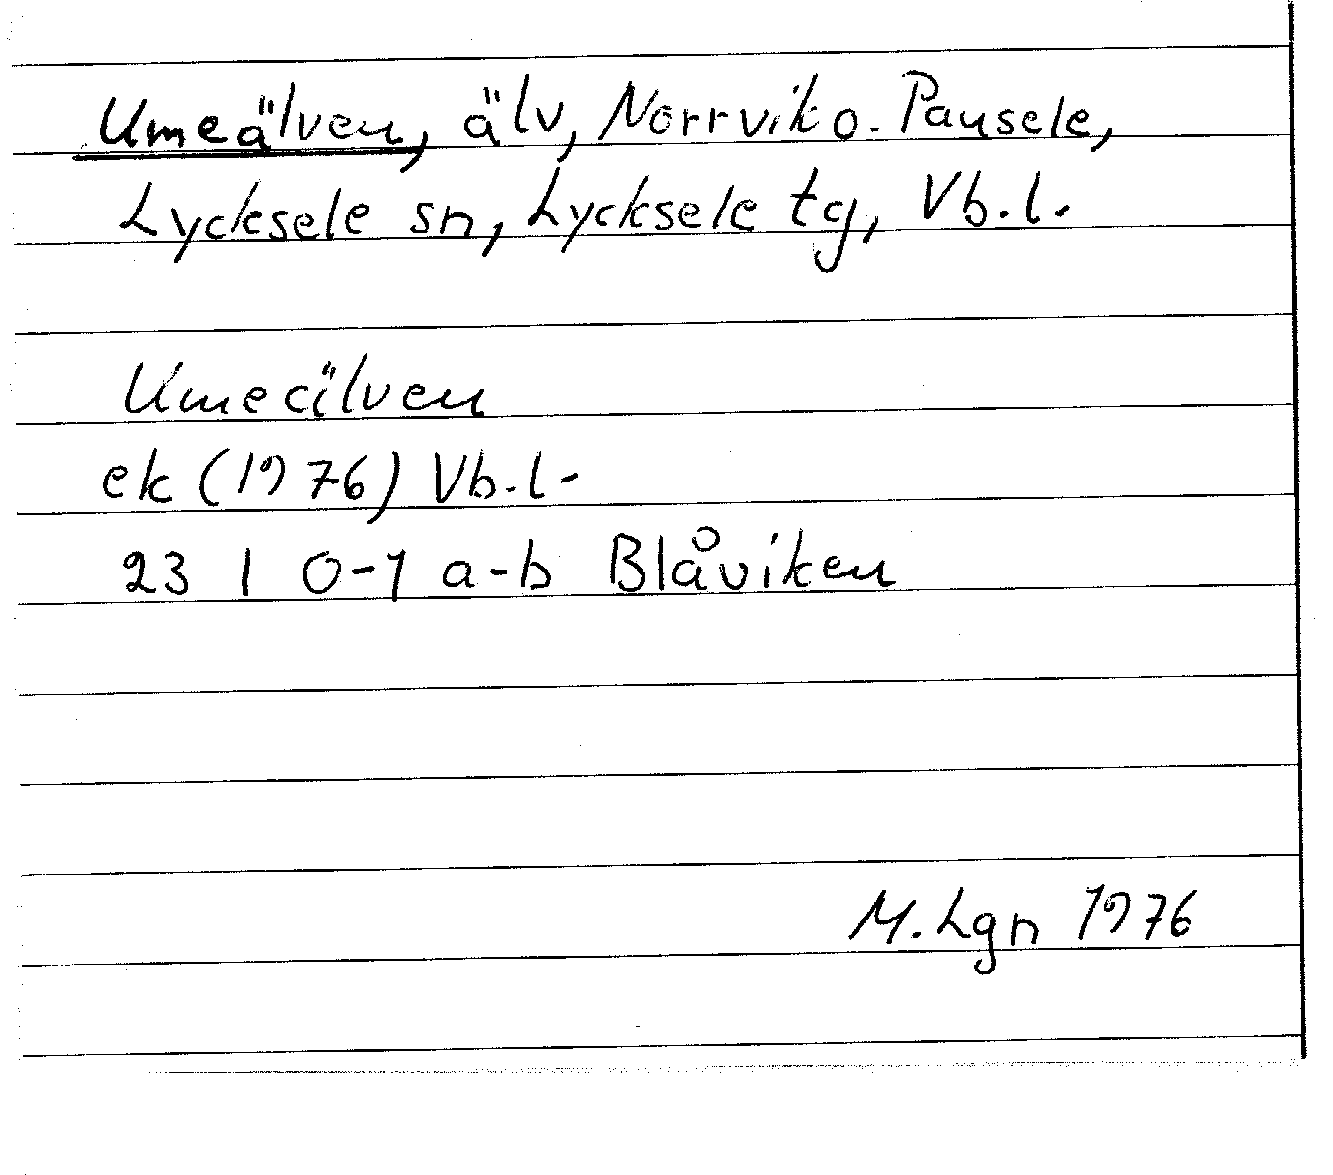 Umeälven, älv, Norrvik o. Pausele,
Lycksele sn, Lycksele tg, Vb. l.
Umeälven
ek (1976) Vb. l.
23 I 0-1 a-b Blåviken
M. Lgn 1976